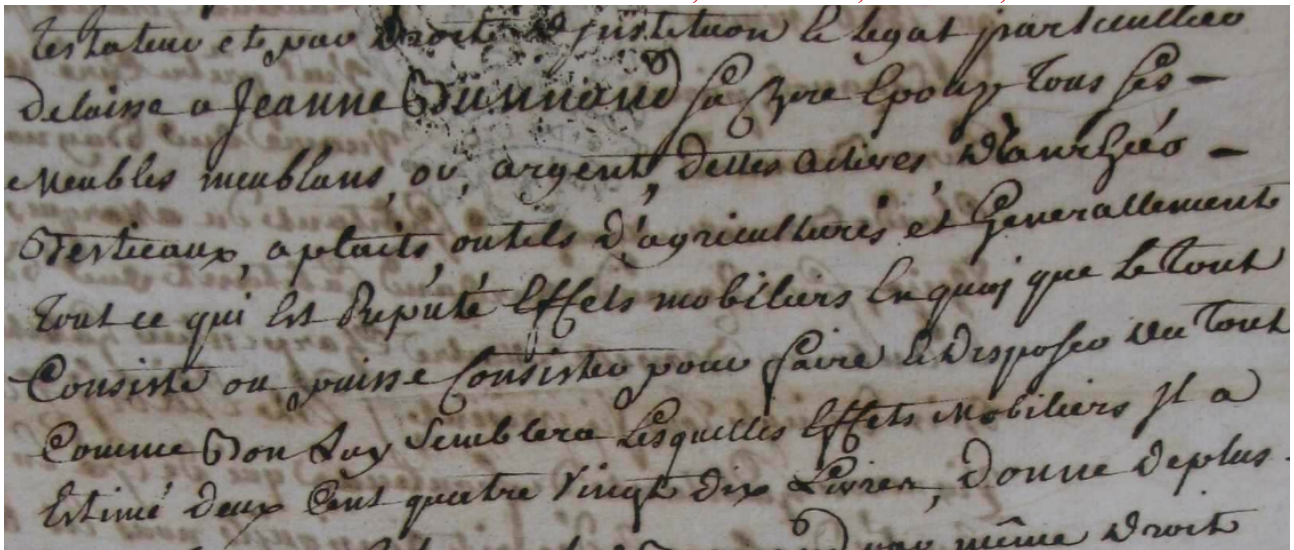 testateur et par droit d'institution et legat particullier
delaisse a Jeanne Dunnand sa chere Epouze tous ses
Meubles meublans, or, argent, dettes actives, danrées
Bestieaux, aplaits, outils d'agricultures et Generallement
tout ce qui Est Reputé Effets mobiliers En quoi que le tout
Consiste ou puisse Consister pour faire et disposer du tout
Comme Bon Luy Semblera Lesquelles Effets Mobiliers Jl a
Estimé deux Cent quatre Vingt dix Livres, donne deplus
par même droit